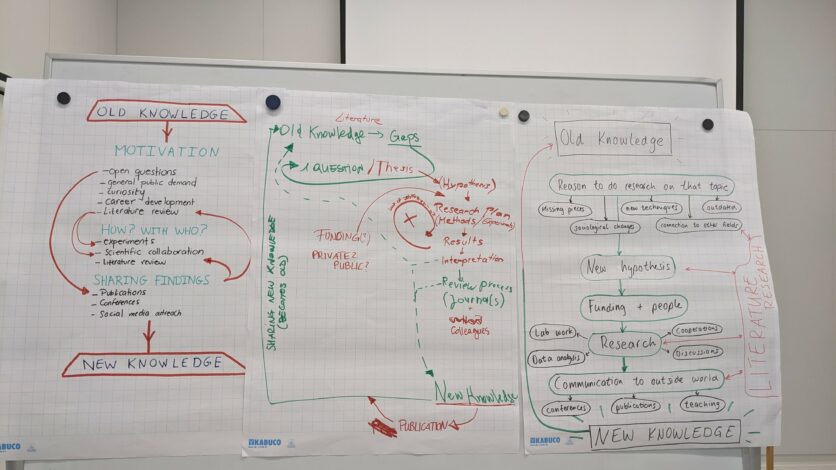 OLD KNOWLEDGE
MOTIVATION
-open questions
-general public demand
-Curiosity
-Career development
-Literature review
HOW? WITH WHO?
-experiments
-Scientific collaboration
-Literature review
SHARING FINDINGS
-Publications
-Conferences
-Social media outreach
NEW KNOWLEDGE
KABUCO
Literature
Old Knowledge → Gaps
1 QUESTION / Thesis
(Hypothesis)
Research Plan
(Methods/Experiments)
FUNDING(?)
PRIVATE?
PUBLIC?
Results
Interpretation
Review process
(Journals)
+
Colleagues
SHARING NEW KNOWLEDGE
(BECOMES OLD)
New Knowledge
PUBLICATION
KABUCO
Old Knowledge
Reason to do research on that topic
Missing pieces
new techniques
outdated
sociological changes
connection to other fields
New hypothesis
Funding + people
Lab work
Cooperations
Research
Data analysis
Discussions
Communication to outside world
conferences
publications
teaching
NEW KNOWLEDGE
LITERATURE
RESEARCH
KABUCO